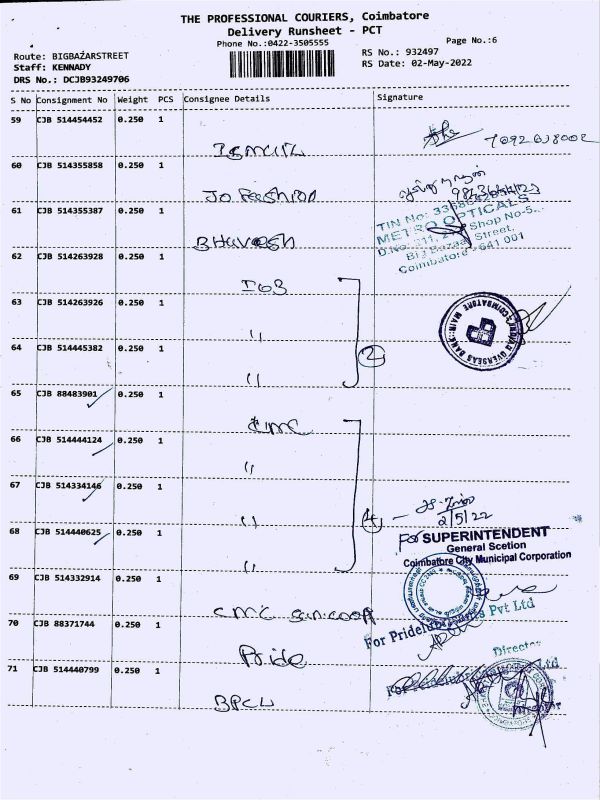 THE PROFESSIONAL COURIERS, Coimbatore
Delivery Runsheet - PCT
Phone No.:0422-3505555
Page No.:6
Route: BIGBAZARSTREET
RS No.: 932497
Staff: KENNADY
RS Date: 02-May-2022
DRS No.: DCJB93249706
S No Consignment No Weight PCS Consignee Details Signature
59 CJB 514454452 0.250 1
60 CJB 514355858 0.250 1
Jo Fashion
61 CJB 514355387 0.250 1
TIN No: 
METRO OPTICALS
D.No: 211, Shop No-5
Big Bazaar Street,
Coimbatore - 641 001
62 CJB 514263928 0.250 1
IOB
63 CJB 514263926 0.250 1
"
INDIAN OVERSEAS BANK COIMBATORE MAIN
64 CJB 514445382 0.250 1
"
2
65 CJB 88483901 0.250 1
CMC
66 CJB 514444124 0.250 1
"
67 CJB 514334146 0.250 1
"
4
2/5/22
68 CJB 514440625 0.250 1
"
For SUPERINTENDENT
General Scetion
Coimbatore City Municipal Corporation
69 CJB 514332914 0.250 1
CMC
For Pvt Ltd
70 CJB 88371744 0.250 1
Pride
Director
71 CJB 514440799 0.250 1
BPCL